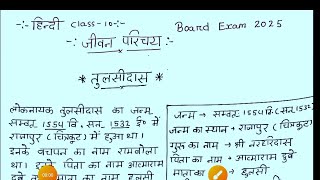 -:- हिन्दी class-10-:-
Board Exam 2025
-:- जीवन परिचय -:-
* तुलसीदास *
लोकनायक तुलसीदास का जन्म
सम्वत् 1554 वि. सन् 1532 ई० में
राजापुर (चित्रकूट) में हुआ था।
इनके बचपन का नाम रामबोला
था। इनके पिता का नाम आत्माराम
दुबे माता का नाम हुलसी
जन्म → सम्वत् 1554 वि. (सन् 1532)
जन्म का स्थान → राजापुर (चित्रकूट)
गुरु का नाम → श्री नरहरिदास
पिता का नाम → आत्माराम दुबे
माता का → हुलसी